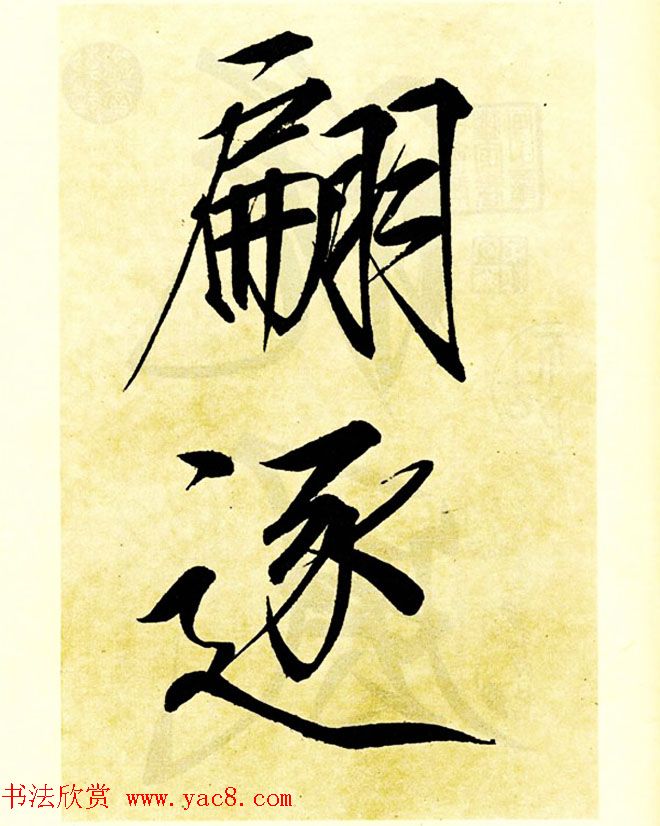 翩
逐
书法欣赏 www.yac8.com